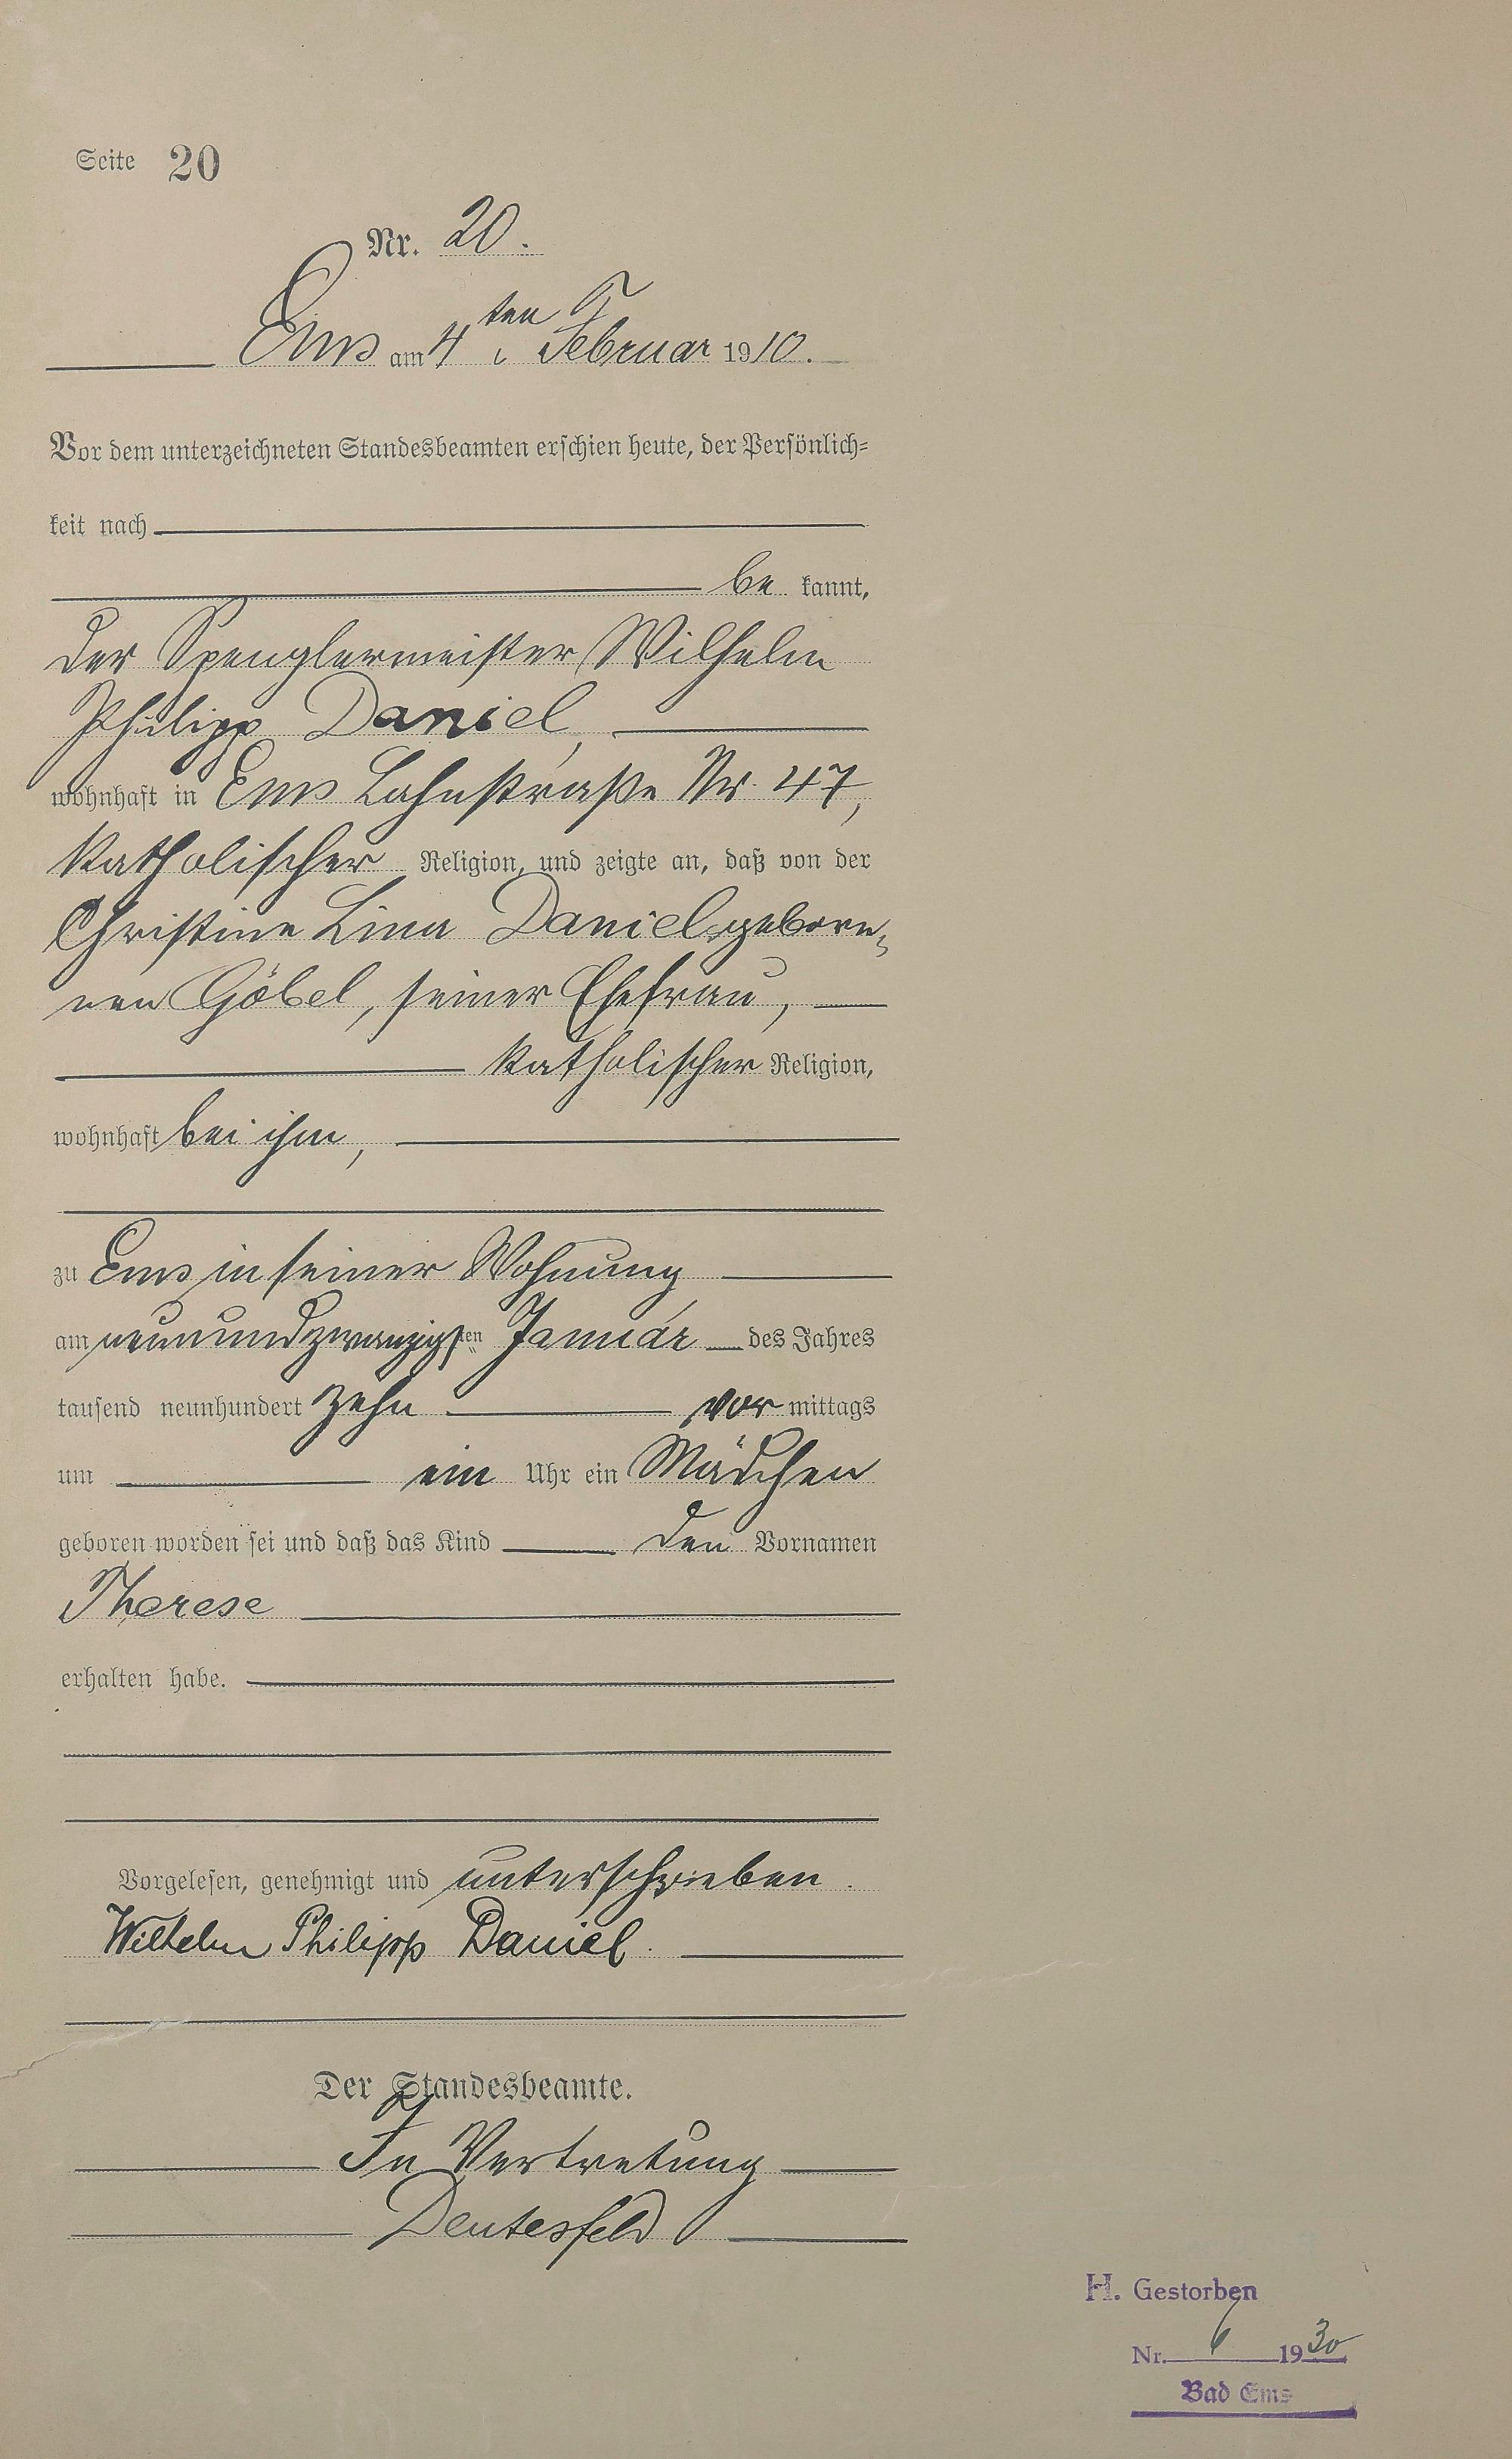 Seite 20
Nr. 20.
Ems am 4ten Februar 1910.
Vor dem unterzeichneten Standesbeamten erschien heute, der Persönlich-
keit nach
be kannt,
der Spenglermeister Wilhelm
Philipp Daniel,
wohnhaft in Ems Lahnstraße Nr. 47,
katholischer Religion, und zeigte an, daß von der
Christine Lina Daniel, gebore-
nen Göbel, seiner Ehefrau,
katholischer Religion,
wohnhaft bei ihm,
zu Ems in seiner Wohnung
am neunundzwanzigsten Januar des Jahres
tausend neunhundert zehn vor mittags
um ein Uhr ein Mädchen
geboren worden sei und daß das Kind den Vornamen
Therese
erhalten habe.
Vorgelesen, genehmigt und unterschrieben.
Wilhelm Philipp Daniel.
Der Standesbeamte.
In Vertretung
Deutesfeld
H. Gestorben
Nr. 6 1930
Bad Ems